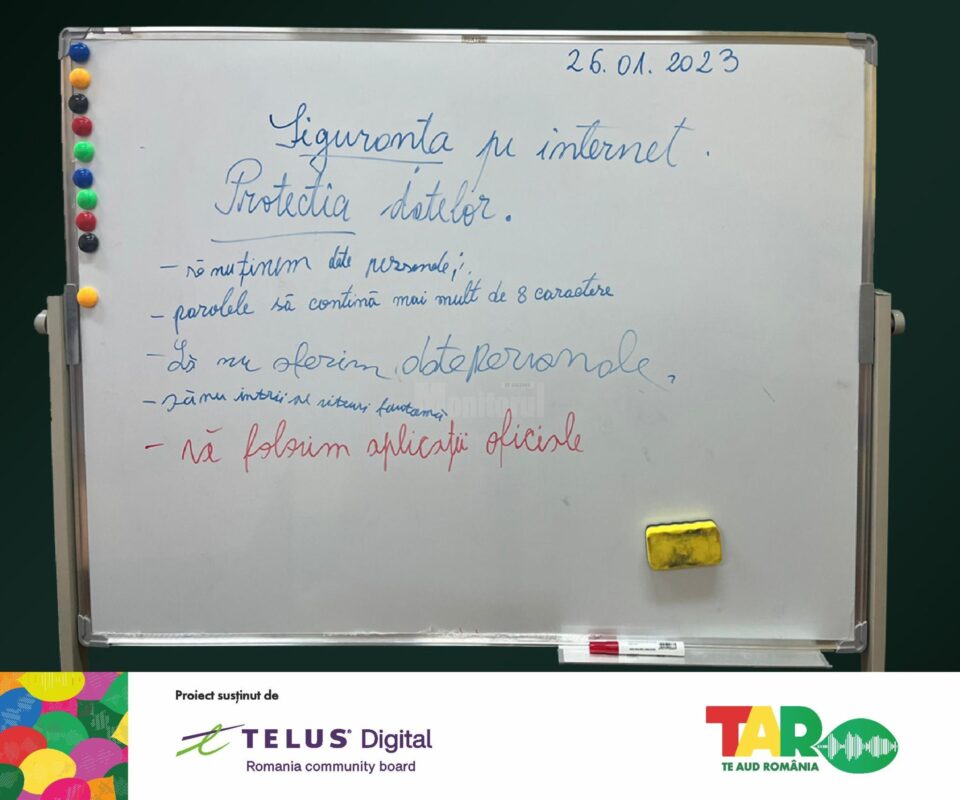 26.01.2023
Siguranta pe internet.
Protectia datelor.
- să nu ținem date personale;
- parolele să contină mai mult de 8 caractere
- Să nu oferim date personale,
- să nu intrii pe siteuri fantomă
Monitorul
- să folosim aplicații oficiale
Proiect susținut de
TELUS® Digital
Romania community board
TAR
TE AUD ROMÂNIA